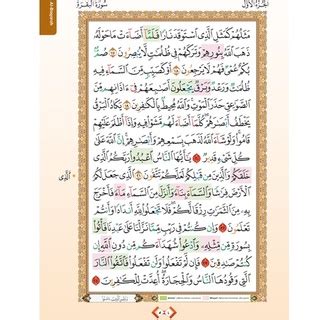 الجُزْءُ الأَوَّلُ
سُورَةُ البَقَرَةِ
Al-Baqarah
مَثَلُهُمْ كَمَثَلِ ٱلَّذِى ٱسْتَوْقَدَ نَارًا فَلَمَّآ أَضَآءَتْ مَا حَوْلَهُۥ
ذَهَبَ ٱللَّهُ بِنُورِهِمْ وَتَرَكَهُمْ فِى ظُلُمَٰتٍ لَّا يُبْصِرُونَ ١٧ صُمٌّۢ
بُكْمٌ عُمْىٌ فَهُمْ لَا يَرْجِعُونَ ١٨ أَوْ كَصَيِّبٍ مِّنَ ٱلسَّمَآءِ
فِيهِ ظُلُمَٰتٌ وَرَعْدٌ وَبَرْقٌ يَجْعَلُونَ أَصَٰبِعَهُمْ فِىٓ ءَاذَانِهِم مِّنَ
ٱلصَّوَٰعِقِ حَذَرَ ٱلْمَوْتِ وَٱللَّهُ مُحِيطٌۢ بِٱلْكَٰفِرِينَ ١٩ يَكَادُ ٱلْبَرْقُ
يَخْطَفُ أَبْصَٰرَهُمْ كُلَّمَآ أَضَآءَ لَهُم مَّشَوْا۟ فِيهِ وَإِذَآ أَظْلَمَ عَلَيْهِمْ
قَامُوا۟ وَلَوْ شَآءَ ٱللَّهُ لَذَهَبَ بِسَمْعِهِمْ وَأَبْصَٰرِهِمْ إِنَّ ٱللَّهَ عَلَىٰ
كُلِّ شَىْءٍ قَدِيرٌ ٢٠ يَٰٓأَيُّهَا ٱلنَّاسُ ٱعْبُدُوا۟ رَبَّكُمُ ٱلَّذِى
خَلَقَكُمْ وَٱلَّذِينَ مِن قَبْلِكُمْ لَعَلَّكُمْ تَتَّقُونَ ٢١ ٱلَّذِى جَعَلَ لَكُمُ
ٱلْأَرْضَ فِرَٰشًا وَٱلسَّمَآءَ بِنَآءً وَأَنزَلَ مِنَ ٱلسَّمَآءِ مَآءً فَأَخْرَجَ
بِهِۦ مِنَ ٱلثَّمَرَٰتِ رِزْقًا لَّكُمْ فَلَا تَجْعَلُوا۟ لِلَّهِ أَندَادًا وَأَنتُمْ
تَعْلَمُونَ ٢٢ وَإِن كُنتُمْ فِى رَيْبٍ مِّمَّا نَزَّلْنَا عَلَىٰ عَبْدِنَا فَأْتُوا۟
بِسُورَةٍ مِّن مِّثْلِهِۦ وَٱدْعُوا۟ شُهَدَآءَكُم مِّن دُونِ ٱللَّهِ إِن
كُنتُمْ صَٰدِقِينَ ٢٣ فَإِن لَّمْ تَفْعَلُوا۟ وَلَن تَفْعَلُوا۟ فَٱتَّقُوا۟ ٱلنَّارَ
ٱلَّتِى وَقُودُهَا ٱلنَّاسُ وَٱلْحِجَارَةُ أُعِدَّتْ لِلْكَٰفِرِينَ ٢٤
ٱلَّذِى
٤